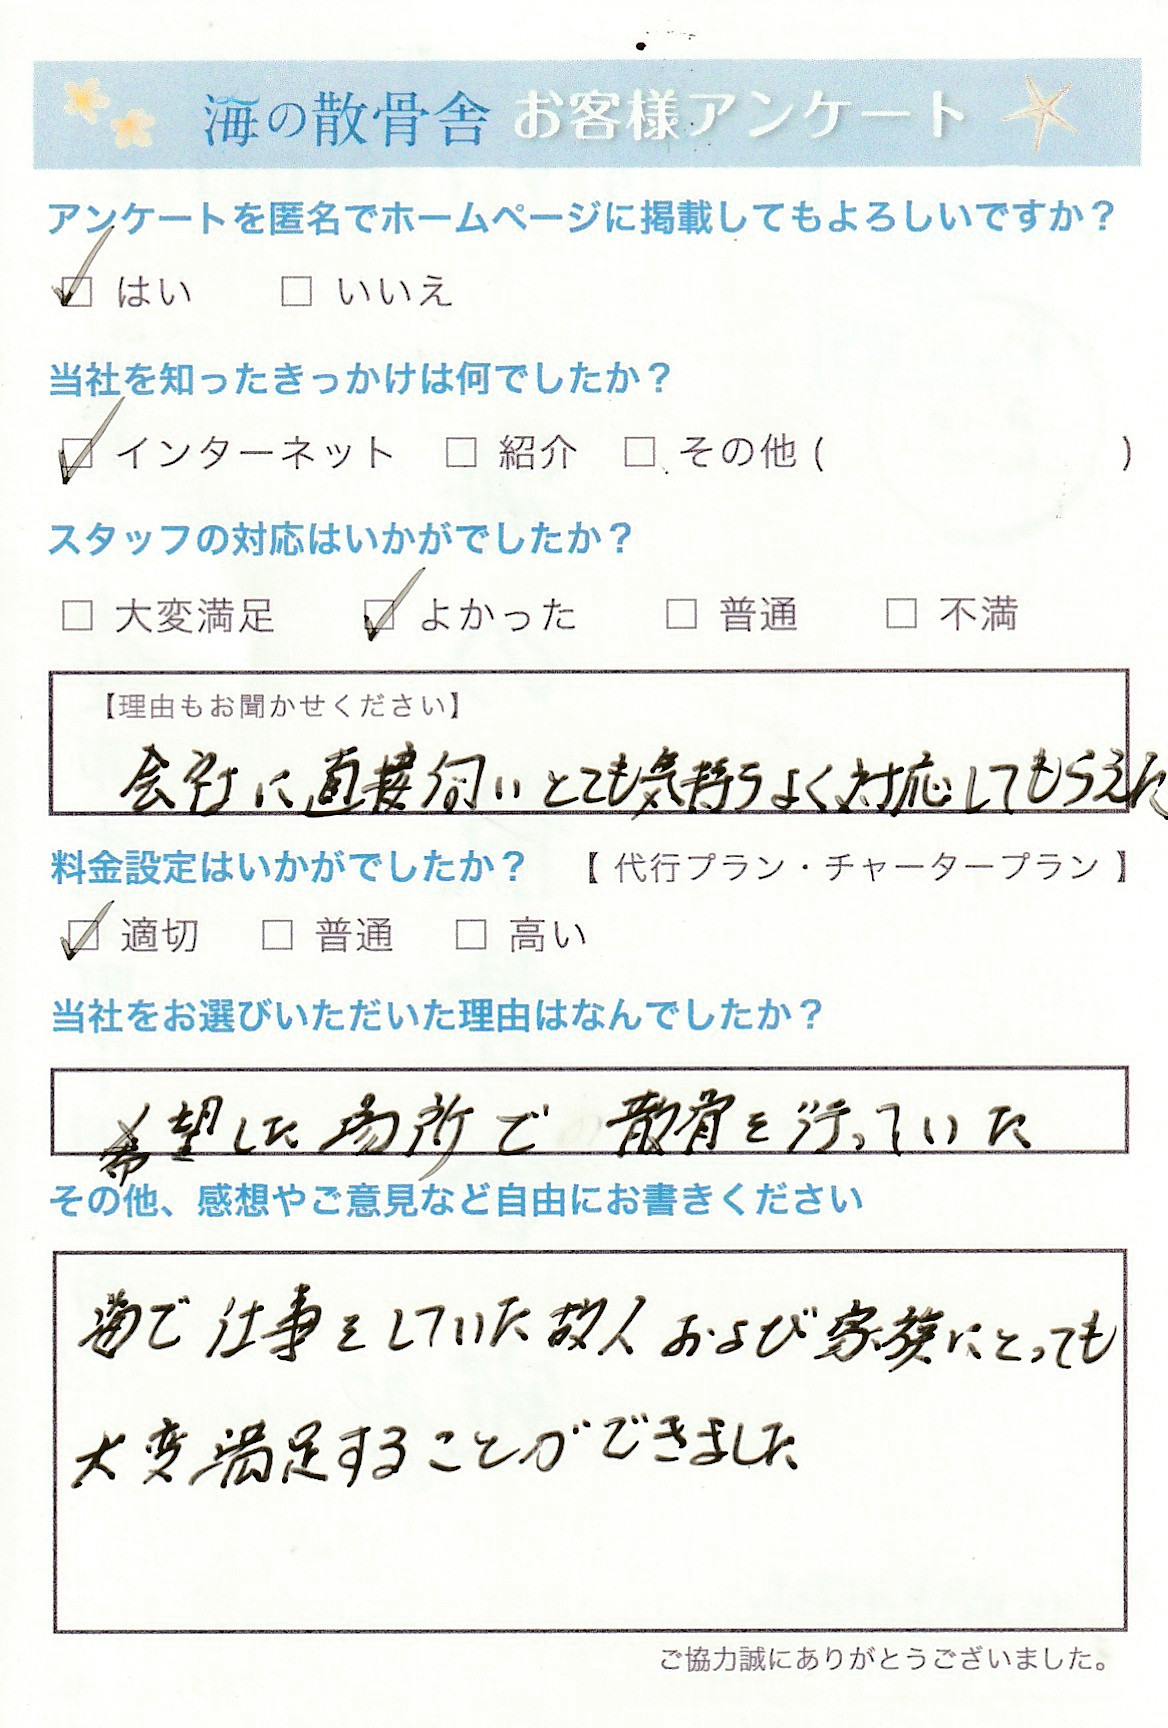 海の散骨舎 お客様アンケート
アンケートを匿名でホームページに掲載してもよろしいですか？
☑ はい □ いいえ
当社を知ったきっかけは何でしたか？
☑ インターネット □ 紹介 □ その他 ( )
スタッフの対応はいかがでしたか？
□ 大変満足 ☑ よかった □ 普通 □ 不満
【理由もお聞かせください】
会社に直接伺いとても気持ちよく対応してもらえた
料金設定はいかがでしたか？ 【 代行プラン・チャータープラン 】
☑ 適切 □ 普通 □ 高い
当社をお選びいただいた理由はなんでしたか？
希望した場所で 散骨を行っていた
その他、感想やご意見など自由にお書きください
海で仕事をしていた故人および家族にとっても
大変満足することができました
ご協力誠にありがとうございました。